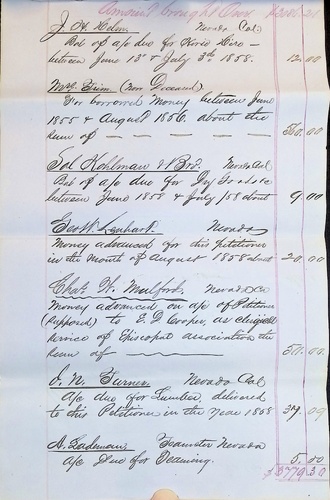 Amount brought Over $2606.21
J. H. Helm Nevada Cal:
Bal of a/c due for Horse Hire —
between June 13th & July 3rd 1858. 12.00
Mr Grim (Now Deceased)
For borrowed Money between June
1855 & August 1856. about the
sum of — — — — — 50.00
Sol Kohlman & Bro. Nevada Cal
Bal of a/c due for
between June 1858 & July /58 about 9.00
Geo W. Lenhart. Nevada
Money advanced for this Petitioner
in the month of August 1858 about 20.00
Chas W. Mulford. Nevada Co
Money advanced on a/c of Petitioner
(supposed) to E. D. Cooper, as
service of Episcopal association the
sum of 50.00
J. N. Turner. Nevada Cal
a/c due for Lumber, delivered
to this Petitioner in the Year 1858 37.09
A. Teamster Nevada
a/c Due for Teaming. 5.50